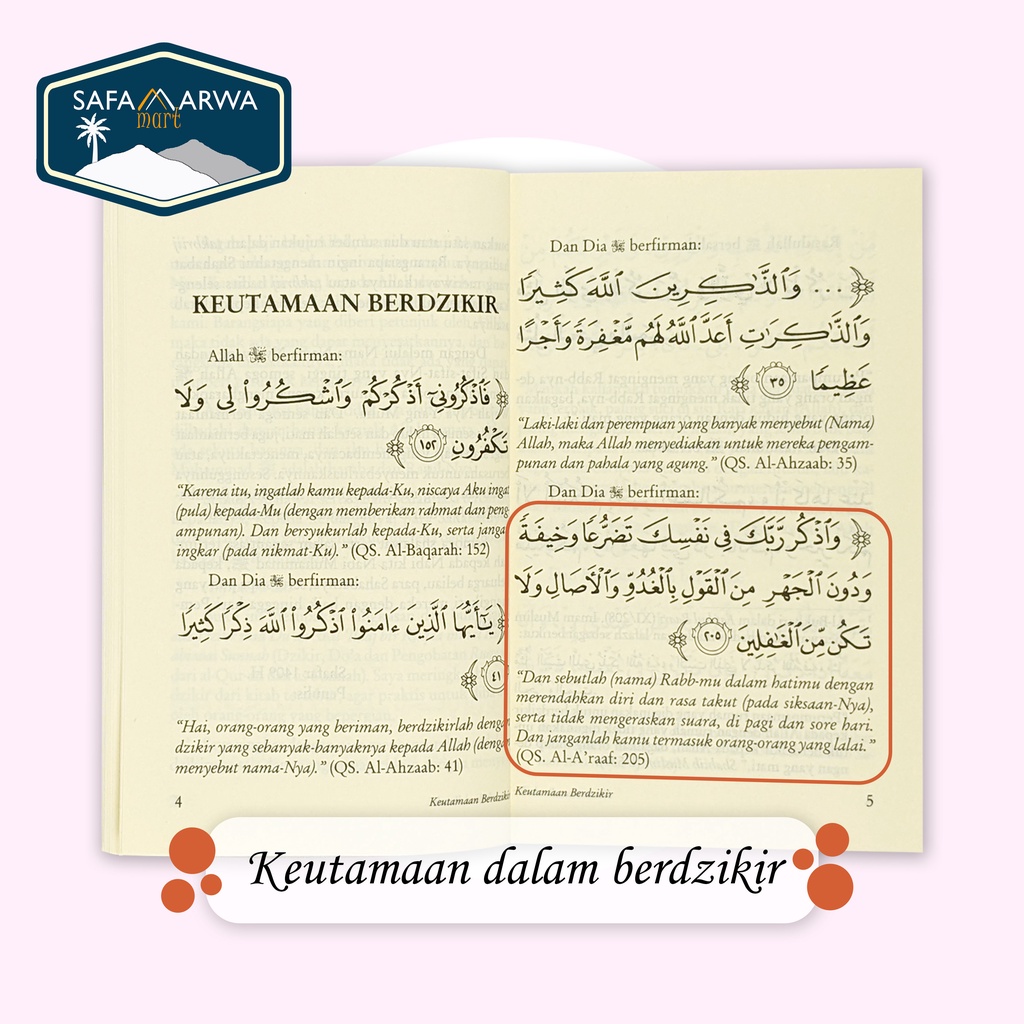 SAFA MARWA
mart
KEUTAMAAN BERDZIKIR
Allah ﷻ berfirman:
﴿ فَٱذْكُرُونِىٓ أَذْكُرْكُمْ وَٱشْكُرُوا۟ لِى وَلَا
تَكْفُرُونِ ١٥٢ ﴾
“Karena itu, ingatlah kamu kepada-Ku, niscaya Aku ingat
(pula) kepada-Mu (dengan memberikan rahmat dan peng
ampunan). Dan bersyukurlah kepada-Ku, serta janga
ingkar (pada nikmat-Ku).” (QS. Al-Baqarah: 152)
Dan Dia ﷻ berfirman:
﴿ يَـٰٓأَيُّهَا ٱلَّذِينَ ءَامَنُوا۟ ٱذْكُرُوا۟ ٱللَّهَ ذِكْرًا كَثِيرًا
٤١ ﴾
“Hai, orang-orang yang beriman, berdzikirlah denga
dzikir yang sebanyak-banyaknya kepada Allah (denga
menyebut nama-Nya).” (QS. Al-Ahzaab: 41)
4
Keutamaan Berdzikir
Dan Dia ﷻ berfirman:
﴿ ... وَٱلذَّٰكِرِينَ ٱللَّهَ كَثِيرًا
وَٱلذَّٰكِرَٰتِ أَعَدَّ ٱللَّهُ لَهُم مَّغْفِرَةً وَأَجْرًا
عَظِيمًا ٣٥ ﴾
“Laki-laki dan perempuan yang banyak menyebut (Nama)
Allah, maka Allah menyediakan untuk mereka pengam-
punan dan pahala yang agung.” (QS. Al-Ahzaab: 35)
Dan Dia ﷻ berfirman:
﴿ وَٱذْكُر رَّبَّكَ فِى نَفْسِكَ تَضَرُّعًا وَخِيفَةً
وَدُونَ ٱلْجَهْرِ مِنَ ٱلْقَوْلِ بِٱلْغُدُوِّ وَٱلْـَٔاصَالِ وَلَا
تَكُن مِّنَ ٱلْغَـٰفِلِينَ ٢٠٥ ﴾
“Dan sebutlah (nama) Rabb-mu dalam hatimu dengan
merendahkan diri dan rasa takut (pada siksaan-Nya),
serta tidak mengeraskan suara, di pagi dan sore hari.
Dan janganlah kamu termasuk orang-orang yang lalai.”
(QS. Al-A’raaf: 205)
Keutamaan Berdzikir
5
Keutamaan dalam berdzikir